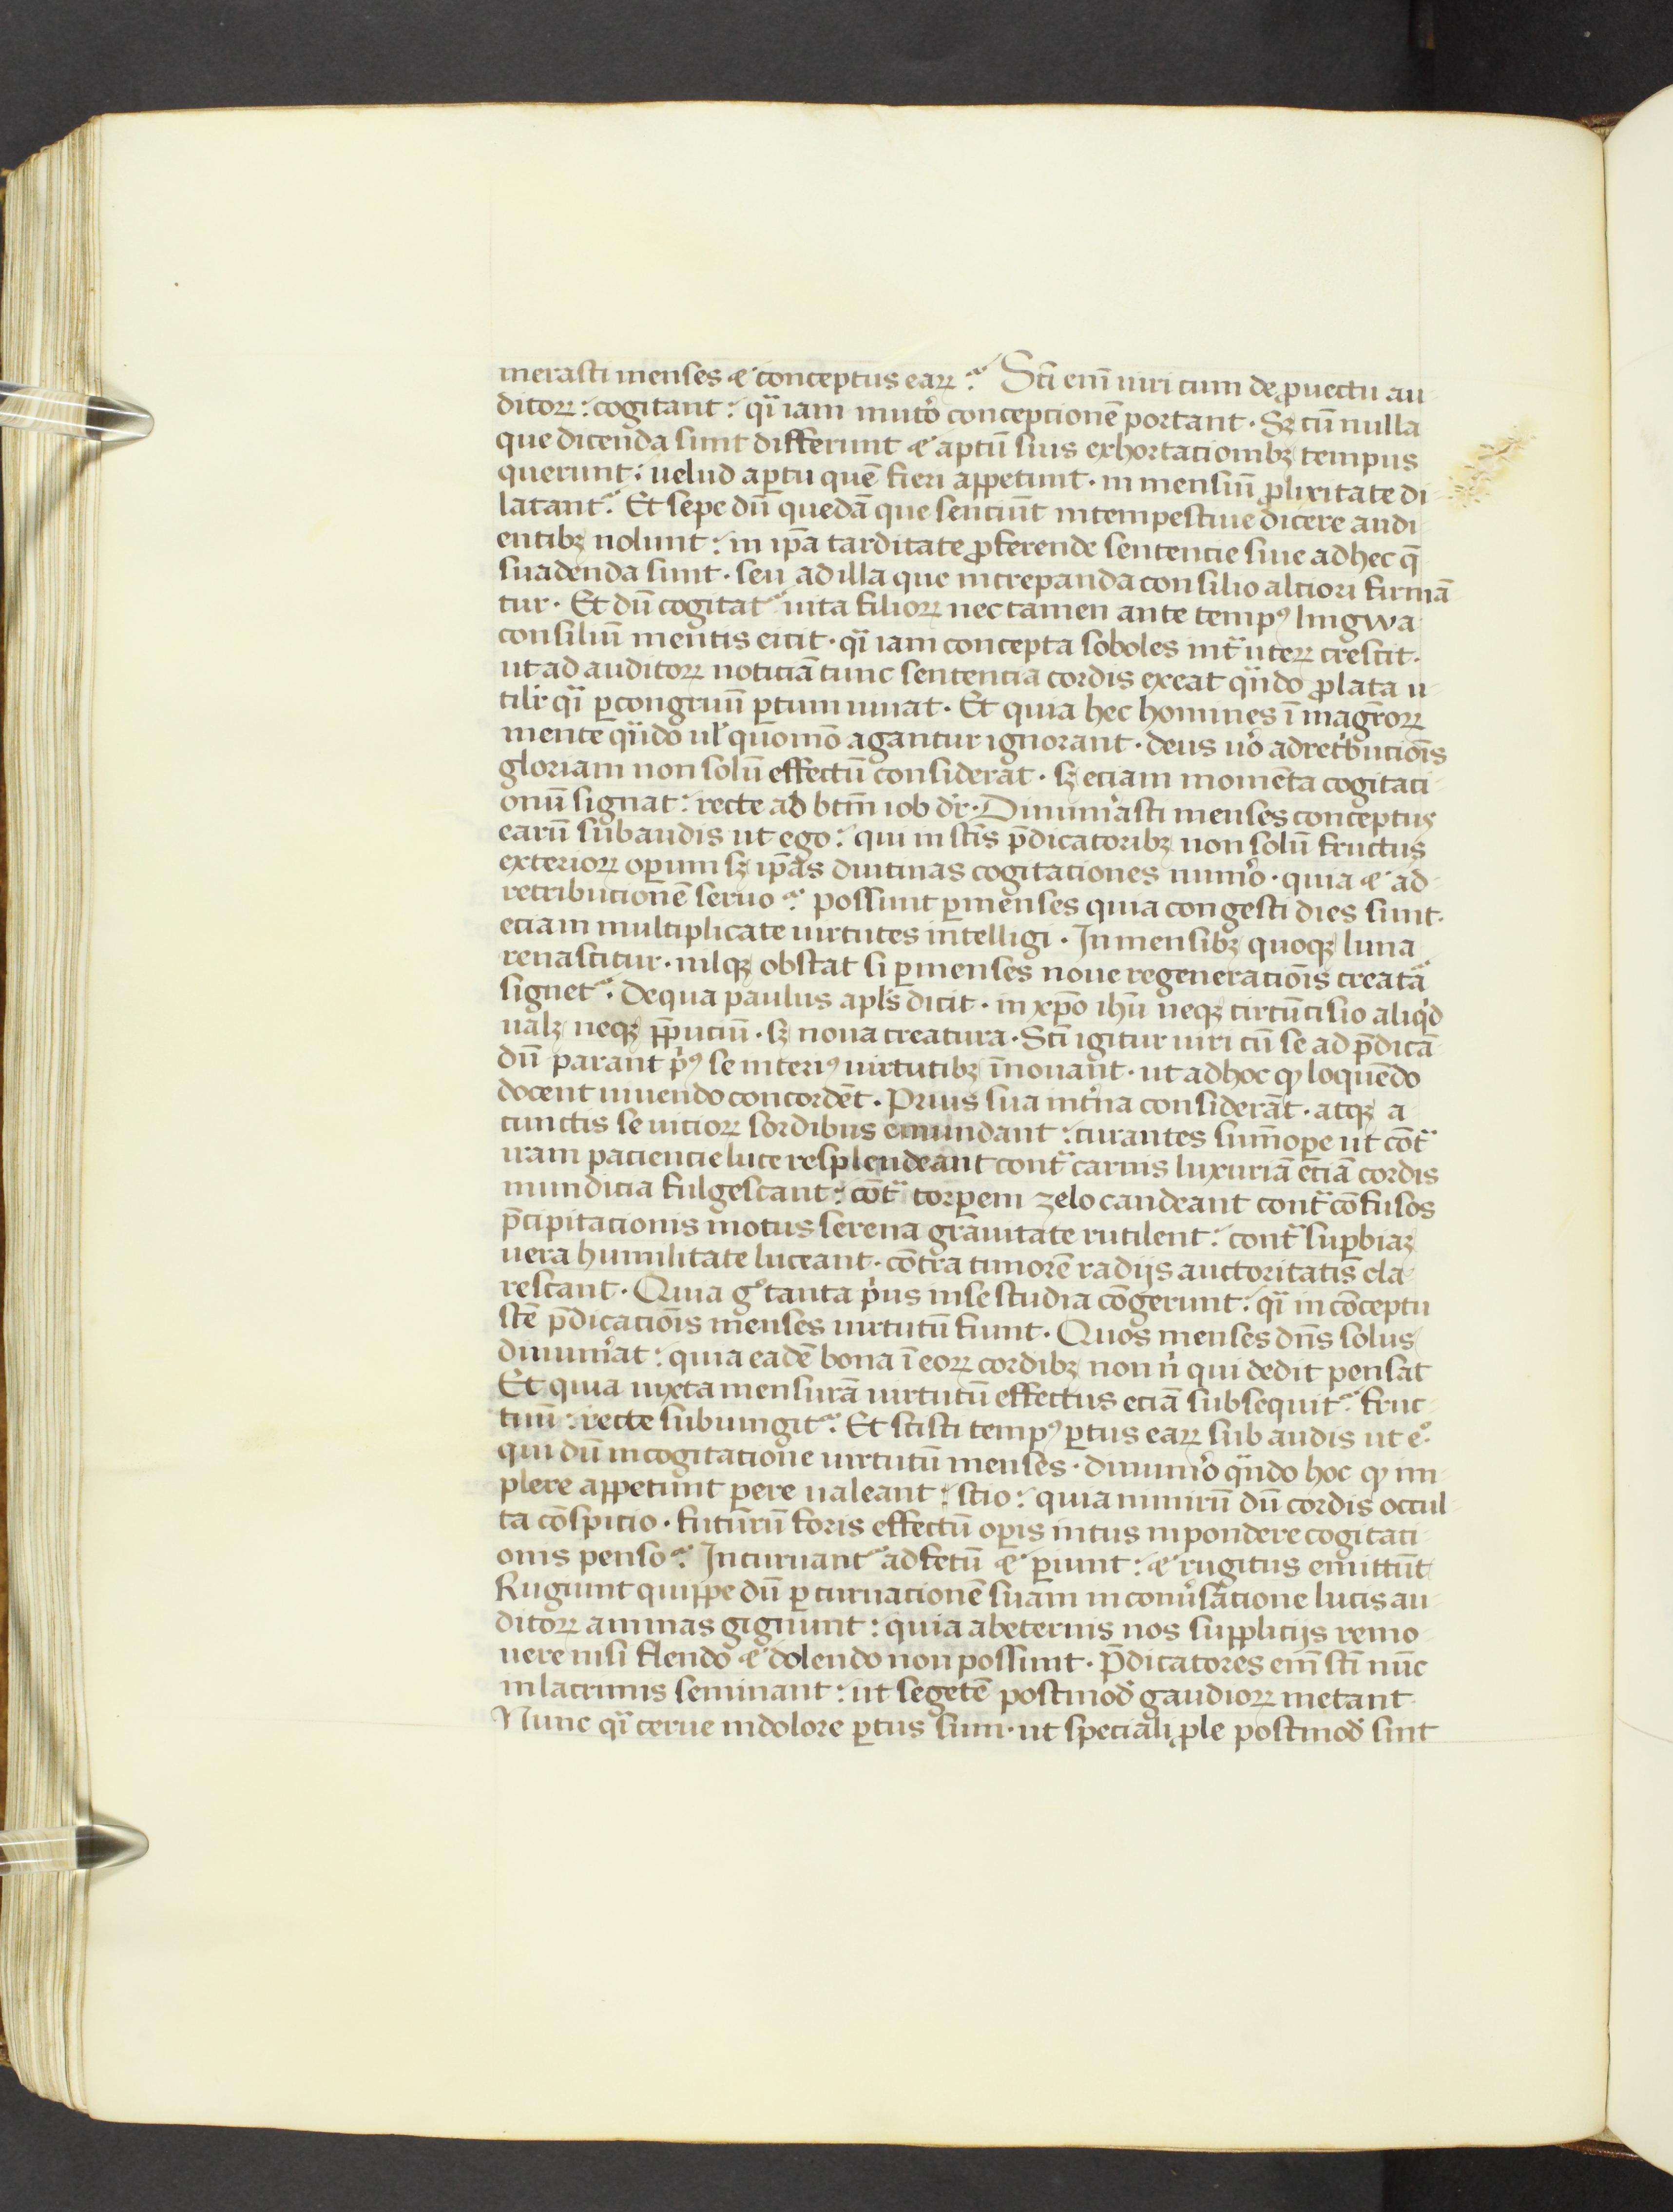 merasti menses ⁊ conceptus eaꝝ. Sc̄i em̄ uiri cum de ꝓuectu au
ditoꝝ: cogitant: qͣi iam in utͦo concepcionē portant. Sꝫ cū nulla
que dicenda sunt differunt ⁊ aptū suis exhortacionibꝫ tempus
querunt: uelud a ꝑtu quē fieri appetunt. in mensiū ꝓlixitate di
latant᷑. Et sepe dū quedā que senciūt intempestiue dicere audi
entibꝫ nolunt: in ip̄a tarditate ꝓferende sentencie siue ad hec q̄
suadenda sunt. seu ad illa que increpanda consilio alciori firmā
tur. Et dū cogitat᷑ uita filioꝝ nec tamen ante tempꝰ lingwa
consiliū mentis eicit. qͣi iam concepta soboles intͣ uteꝝ crescit.
ut ad auditoꝝ noticiā tunc sentencia cordis exeat qͣndo ꝓlata u
tilir̄ qͣi ꝑ congruū ꝑtum uiuat. Et quia hec homines ī magr̄oꝝ
mente qͣndo ul̓ quōmō agantur ignorant. deus u̓o ad ret̓bucionīs
gloriam non solū effectū considerat. sꝫ eciam momēta cogitaci
onū signat: recte ad btm̄ iob dr̄. Dinum̓asti menses conceptus
earū subaudis ut ego: qui in sc̄is p̄dicatoribꝫ non solū fructus
exterioꝝ oꝑum sꝫ ip̄as diutinas cogitaciones num̓o. quia ⁊ ad
retribucionē seruo. possunt ꝑ menses quia congesti dies sunt.
eciam multiplicate uirtutes intelligi. In mensibꝫ quoqꝫ luna
renascitur. nilqꝫ obstat si ꝑ menses noue regeneracionīs creatᷓa
signet᷑. De qua paulus apl̓s dicit. in xp̄o ihū neqꝫ circūcisio aliqͥd
ualꝫ neqꝫ p̄puciū. sꝫ noua creatura. Sc̄i igitur uiri cū se ad p̄dicā
dū parant pͥꝰ se interiꝰ uirtutibꝫ īnouant. ut ad hoc ꝙ loquēdo
docent uiuendo concordēt. Prius sua int̓na considerāt. atqꝫ a
cunctis se uicioꝝ sordibus emundant: curantes sum̄oꝑe ut cōtͣ
iram paciencie luce resplendeant contͣ carnis luxuriā eciā cordis
mundicia fulgescant: cōtͣ torꝑem zelo candeant contͣ cōfusos
p̄cipitacionis motus serena grauitate rutilent: contͣ suꝑbiaꝫ
uera humilitate luceant. cōtra timorē radijs auctoritatis cla
rescant. Quia gͦ tanta pͥus in se studia cōgerunt: qͣi in cōceptu
sc̄e p̄dicacionīs menses uirtutū fiunt. Quos menses dn̄s solus
dinum̓at: quia eadē bona ī eoꝝ cordibꝫ non n̓ qui dedit pensat
Et quia iuxta mensurā uirtutū effectus eciā subsequit᷑ fruc
tuū: recte subiungit᷑. Et scisti tempꝰ ꝑtus eaꝝ subaudis ut eͦ.
qui dū in cogitatione uirtutū menses. dinum̓o qͣndo hoc ꝙ im
plere appetunt ꝑere ualeant: scio: quia nimirū dū cordis occul
ta cōspicio. futurū foris effectū oꝑis intus in pondere cogitaci
onis penso. Incuruant᷑ ad fetū ⁊ ꝑiunt: ⁊ rugitus emittūt
Rugiunt quippe dū ꝑ curuacionē suam in conu̓sacione lucis au
ditoꝝ animas gignunt: quia ab eternis nos supplicijs remo
uere nisi flendo ⁊ dolendo non possunt. P̄dicatores em̄ sc̄i nūc
in lacrimis seminant: ut segetē postmod̓ gaudioꝝ metant
Nunc qͣi cerue in dolore ꝑtus sunt. ut speciali ꝓle postmod̓ sint